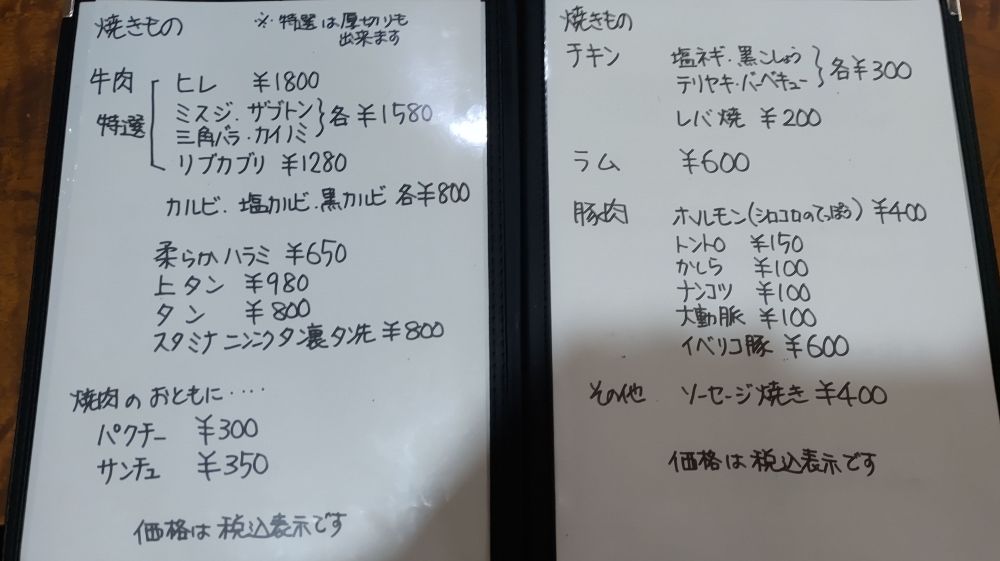 焼きもの
※特選は厚切りも
出来ます
牛肉
特選
ヒレ ¥1800
ミスジ・ザブトン
三角バラ・カイノミ
各¥1580
リブカブリ ¥1280
カルビ・塩カルビ・黒カルビ 各¥800
柔らかハラミ ¥650
上タン ¥980
タン ¥800
スタミナニンニクタン裏タン先 ¥800
焼肉のおともに・・・・
パクチー ¥300
サンチュ ¥350
価格は税込表示です
焼きもの
チキン 塩ネギ・黒こしょう
テリヤキ・バーベキュー
各¥300
レバ焼 ¥200
ラム ¥600
豚肉 ホルモン(シロコロのてっぽう) ¥400
トントロ ¥150
かしら ¥100
ナンコツ ¥100
大動脈 ¥100
イベリコ豚 ¥600
その他 ソーセージ焼き ¥400
価格は税込表示です